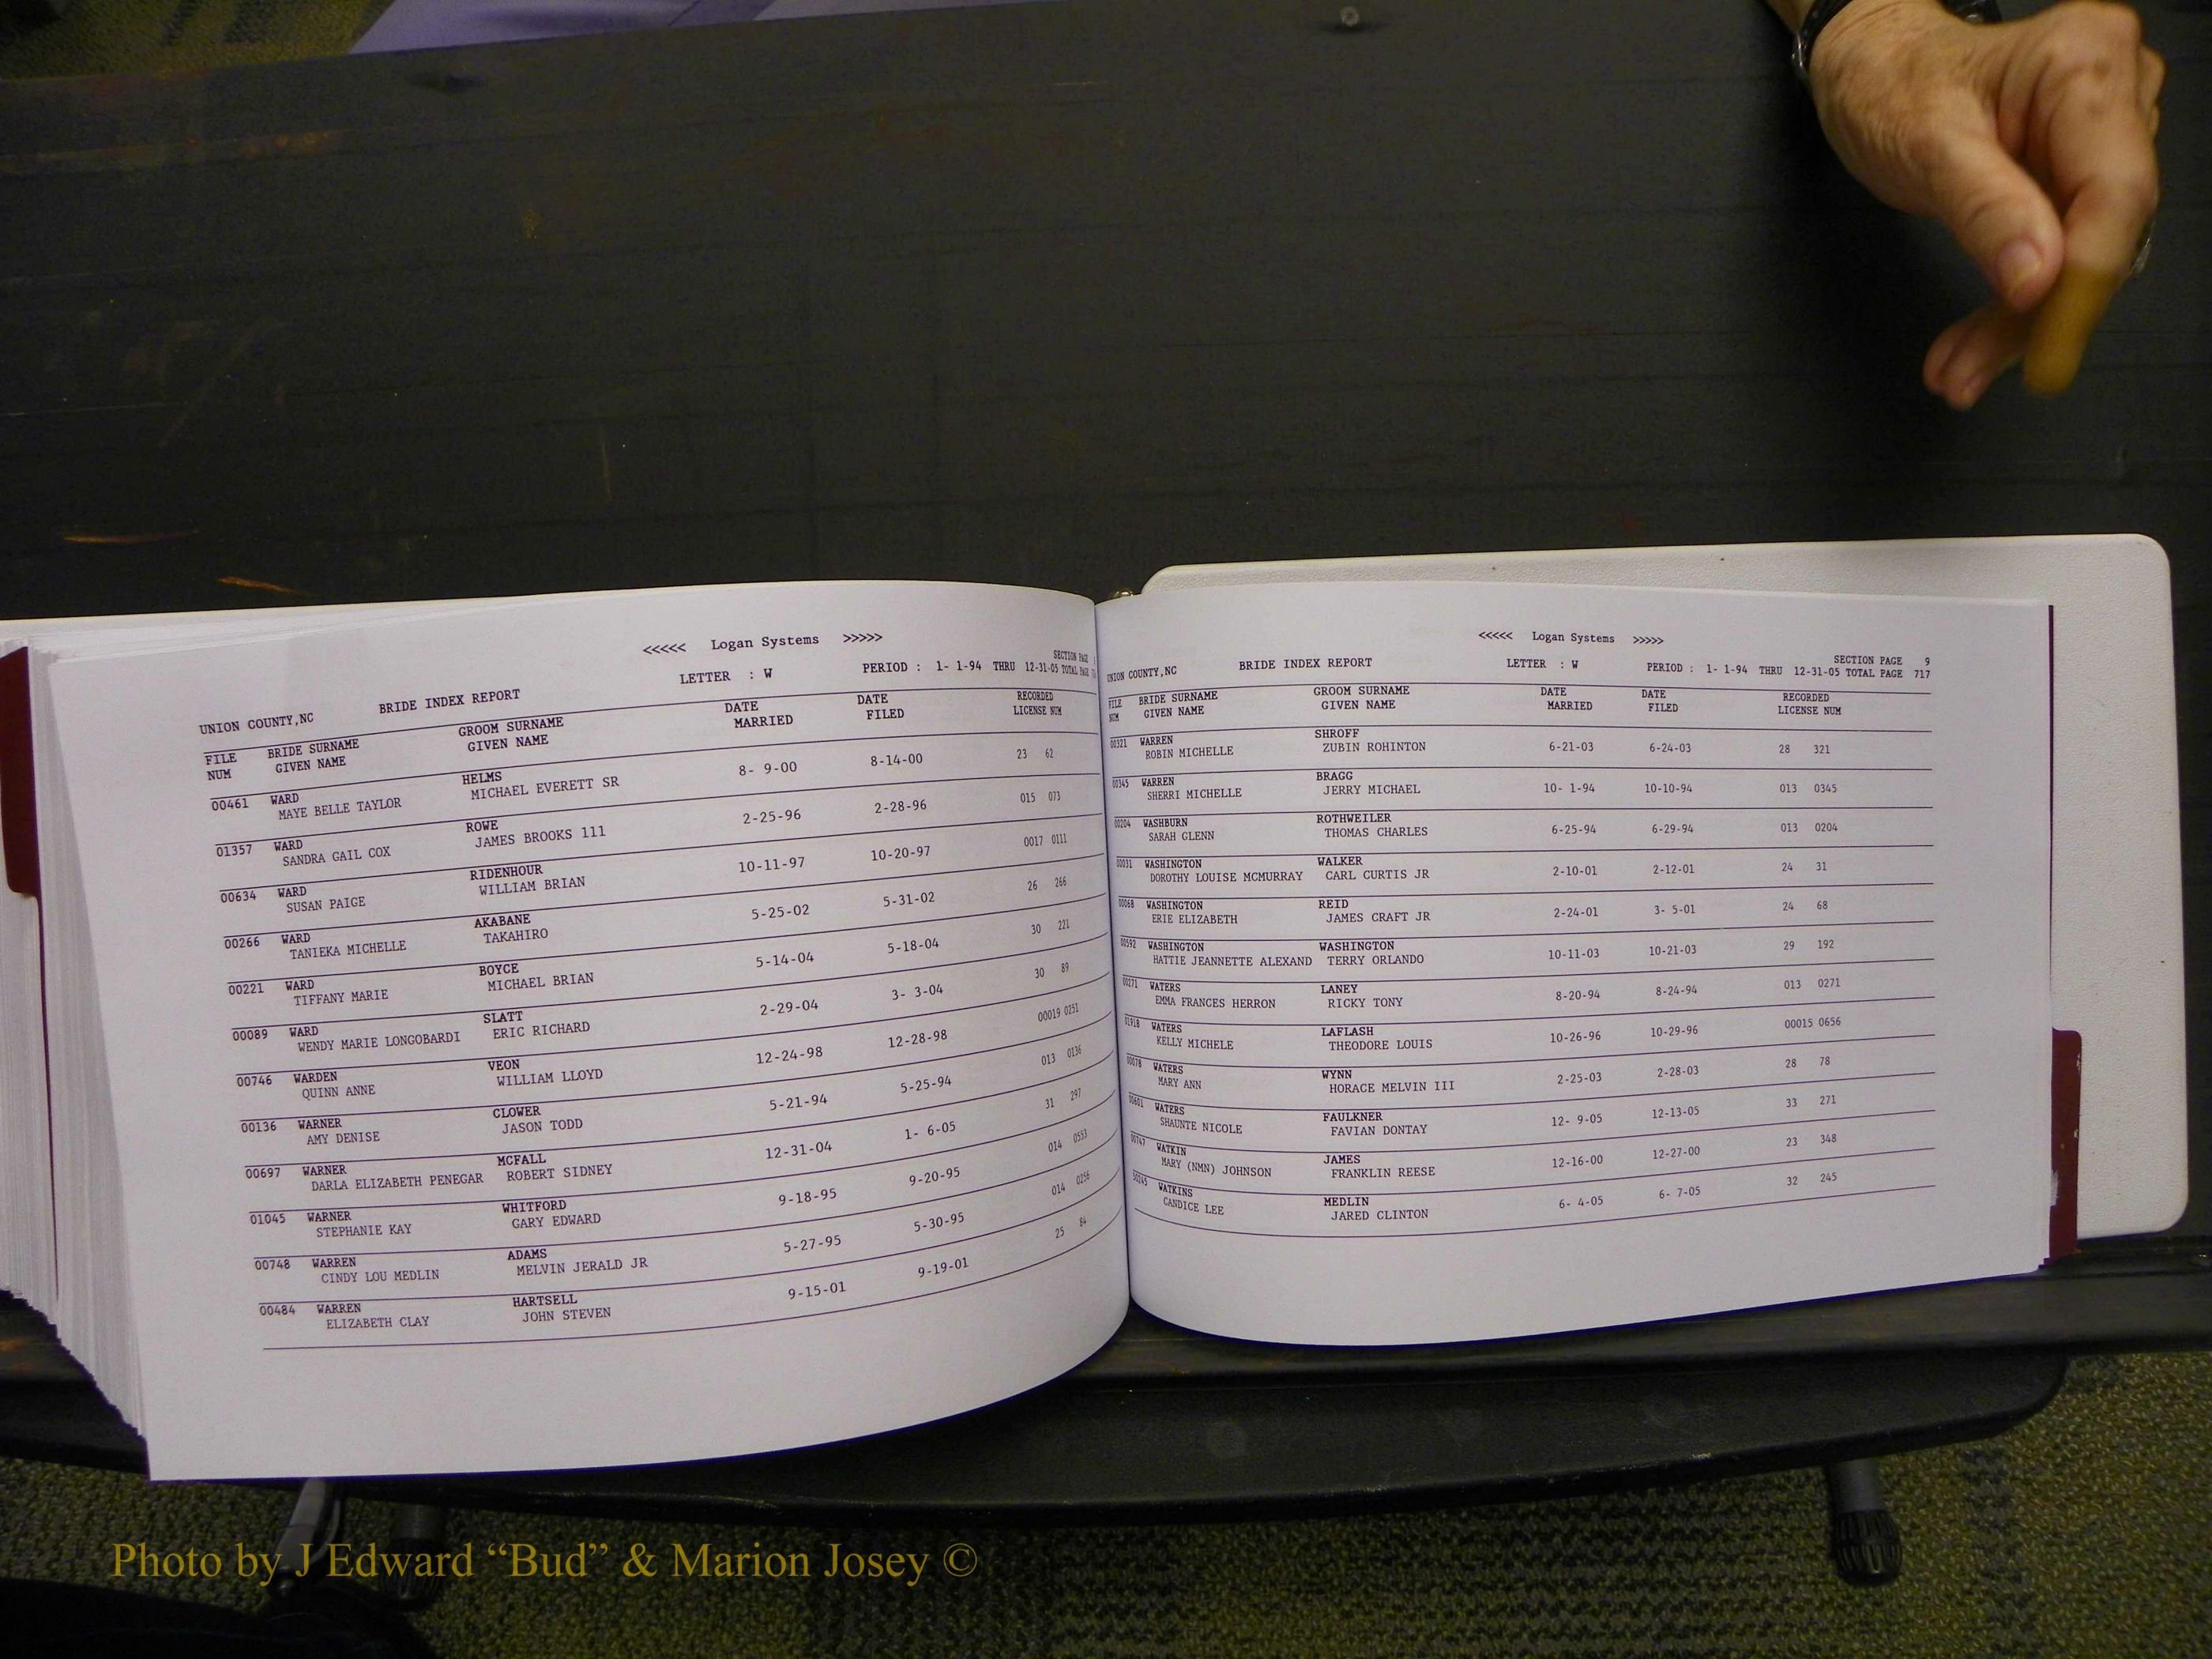 <<<<< Logan Systems >>>>>
SECTION PAGE
UNION COUNTY,NC BRIDE INDEX REPORT LETTER : W PERIOD : 1- 1-94 THRU 12-31-05 TOTAL PAGE
FILE BRIDE SURNAME GROOM SURNAME DATE DATE RECORDED
NUM GIVEN NAME GIVEN NAME MARRIED FILED LICENSE NUM
00461 WARD HELMS 8- 9-00 8-14-00 23 62
MAYE BELLE TAYLOR MICHAEL EVERETT SR
01357 WARD ROWE 2-25-96 2-28-96 015 073
SANDRA GAIL COX JAMES BROOKS 111
00634 WARD RIDENHOUR 10-11-97 10-20-97 0017 0111
SUSAN PAIGE WILLIAM BRIAN
00266 WARD AKABANE 5-25-02 5-31-02 26 266
TANIEKA MICHELLE TAKAHIRO
00221 WARD BOYCE 5-14-04 5-18-04 30 221
TIFFANY MARIE MICHAEL BRIAN
00089 WARD SLATT 2-29-04 3- 3-04 30 89
WENDY MARIE LONGOBARDI ERIC RICHARD
00746 WARDEN VEON 12-24-98 12-28-98 00019 0251
QUINN ANNE WILLIAM LLOYD
00136 WARNER CLOWER 5-21-94 5-25-94 013 0136
AMY DENISE JASON TODD
00697 WARNER MCFALL 12-31-04 1- 6-05 31 297
DARLA ELIZABETH PENEGAR ROBERT SIDNEY
01045 WARNER WHITFORD 9-18-95 9-20-95 014 0553
STEPHANIE KAY GARY EDWARD
00748 WARREN ADAMS 5-27-95 5-30-95 014 0256
CINDY LOU MEDLIN MELVIN JERALD JR
00484 WARREN HARTSELL 9-15-01 9-19-01 25 84
ELIZABETH CLAY JOHN STEVEN
<<<<< Logan Systems >>>>>
SECTION PAGE 9
UNION COUNTY,NC BRIDE INDEX REPORT LETTER : W PERIOD : 1- 1-94 THRU 12-31-05 TOTAL PAGE 717
FILE BRIDE SURNAME GROOM SURNAME DATE DATE RECORDED
NUM GIVEN NAME GIVEN NAME MARRIED FILED LICENSE NUM
00321 WARREN SHROFF 6-21-03 6-24-03 28 321
ROBIN MICHELLE ZUBIN ROHINTON
00345 WARREN BRAGG 10- 1-94 10-10-94 013 0345
SHERRI MICHELLE JERRY MICHAEL
00204 WASHBURN ROTHWEILER 6-25-94 6-29-94 013 0204
SARAH GLENN THOMAS CHARLES
00031 WASHINGTON WALKER 2-10-01 2-12-01 24 31
DOROTHY LOUISE MCMURRAY CARL CURTIS JR
00068 WASHINGTON REID 2-24-01 3- 5-01 24 68
ERIE ELIZABETH JAMES CRAFT JR
00592 WASHINGTON WASHINGTON 10-11-03 10-21-03 29 192
HATTIE JEANNETTE ALEXAND TERRY ORLANDO
00271 WATERS LANEY 8-20-94 8-24-94 013 0271
EMMA FRANCES HERRON RICKY TONY
01918 WATERS LAFLASH 10-26-96 10-29-96 00015 0656
KELLY MICHELE THEODORE LOUIS
00078 WATERS WYNN 2-25-03 2-28-03 28 78
MARY ANN HORACE MELVIN III
00601 WATERS FAULKNER 12- 9-05 12-13-05 33 271
SHAUNTE NICOLE FAVIAN DONTAY
00747 WATKIN JAMES 12-16-00 12-27-00 23 348
MARY (NMN) JOHNSON FRANKLIN REESE
WATKINS MEDLIN 6- 4-05 6- 7-05 32 245
CANDICE LEE JARED CLINTON
Photo by J Edward “Bud” & Marion Josey ©